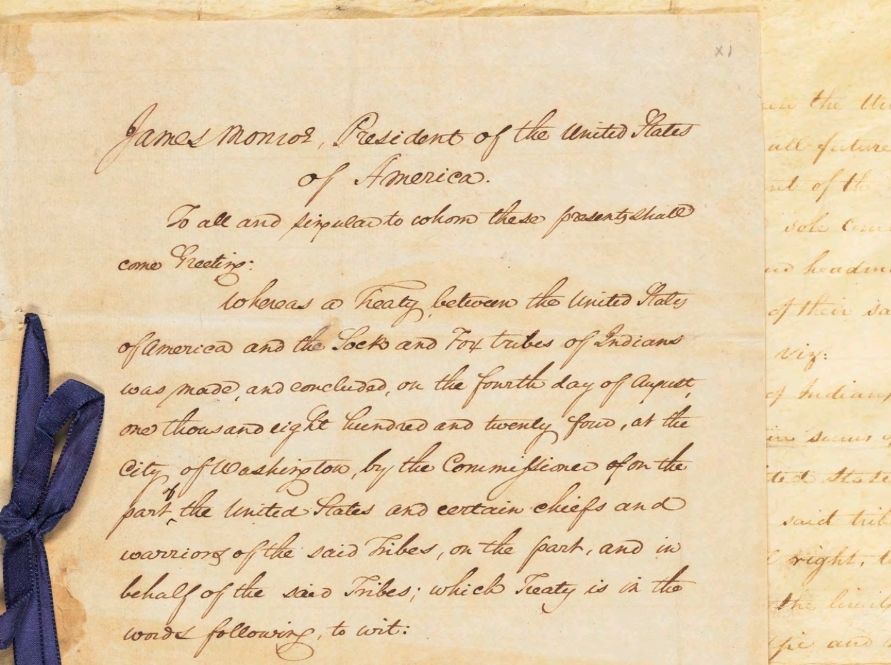 X1
James Monroe, President of the United States
of America.
To all and singular to whom these presents shall
come Greeting:
Whereas a Treaty between the United States
of America and the Sock and Fox tribes of Indians
was made, and concluded, on the fourth day of August,
one thousand eight hundred and twenty four, at the
City of Washington, by the Commissioner of on the
part of the United States and certain chiefs and
warriors of the said Tribes, on the part, and in
behalf of the said Tribes; which Treaty is in the
words following, to wit:
the Uni
all future
of the
sole
headm
of their sa
viz:
of Indians
States
said trib
right,
the
and